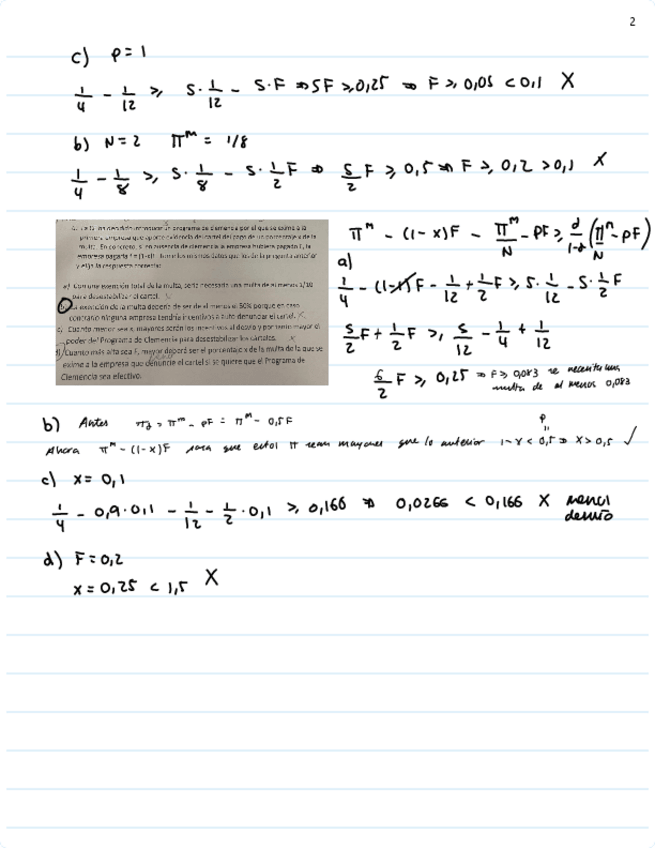 2
c) p = 1
1/4 - 1/12 ≥ 5·1/12 - 5·F ⇒ 5F ≥ 0,25 ⇒ F ≥ 0,05 < 0,1 X
b) N = 2 πᵐ = 1/8
1/4 - 1/8 ≥ 5·1/8 - 5·1/2 F ⇒ 5/2 F ≥ 0,5 ⇒ F ≥ 0,2 > 0,1 X
primera empresa que aporte evidencia del cartel del pago de un porcentaje x de la
multa. En concreto, si en ausencia de clemencia la empresa hubiera pagado F, la
y elija la respuesta correcta:
a) Con una exención total de la multa, sería necesaria una multa de al menos 1/10
para desestabilizar el cartel.
b) La exención de la multa debería de ser de al menos el 50% porque en caso
contrario ninguna empresa tendría incentivos a auto denunciar el cartel. X
c) Cuanto menor sea x, mayores serán los incentivos al desvío y por tanto mayor el
poder del Programa de Clemencia para desestabilizar los cárteles. X
d) Cuanto más alta sea F, mayor deberá ser el porcentaje x de la multa de la que se
exime a la empresa que denuncie el cartel si se quiere que el Programa de
Clemencia sea efectivo.
πᵐ - (1-x)F - πᵐ/N - pF ≥ d/1-d (πᵐ/N - pF)
a)
1/4 - (1-1)F - 1/12 + 1/2 F ≥ 5·1/12 - 5·1/2 F
5/2 F + 1/2 F ≥ 5/12 - 1/4 + 1/12
6/2 F ≥ 0,25 ⇒ F ≥ 0,083 se necesita una
multa de al menos 0,083
b) Antes πd = πᵐ - pF = πᵐ - 0,5F
p
"
Ahora πᵐ - (1-x)F para que estos π sean mayores que lo anterior 1-x < 0,5 ⇒ x > 0,5 ✓
c) x = 0,1
1/4 - 0,9·0,1 - 1/12 - 1/2·0,1 ≥ 0,166 ⇒ 0,0266 < 0,166 X menos
desvío
d) F = 0,2
x = 0,25 < 1,5 X